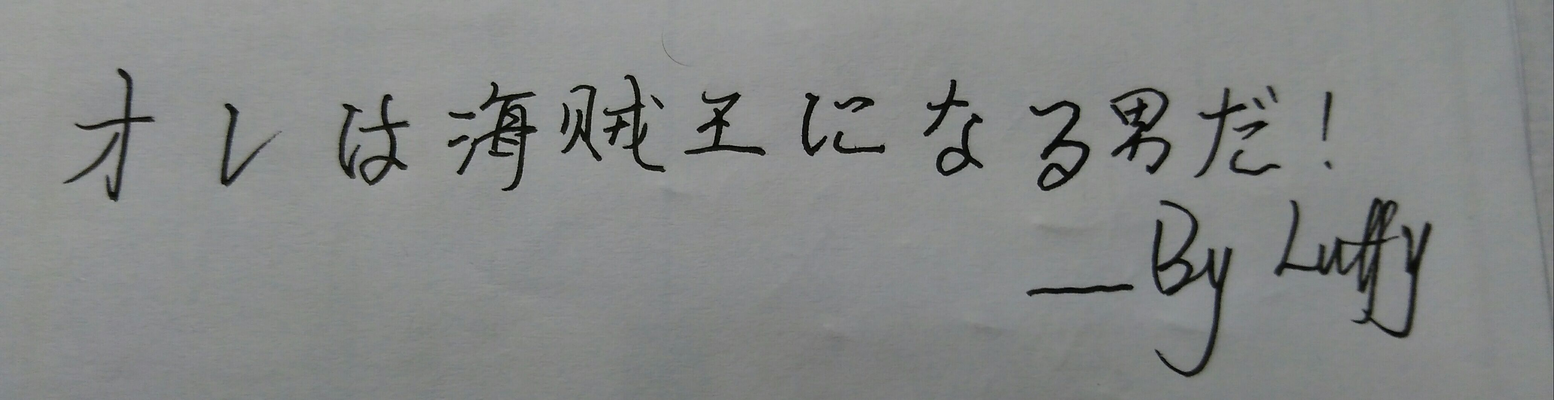 オレは海贼王になる男だ！
—By Luffy